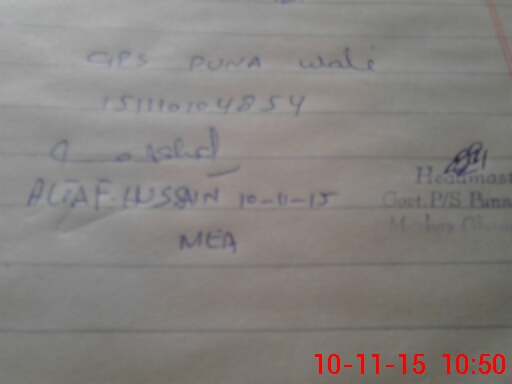 GPS PUNA Wali
151110104854
ALTAF HUSSAIN 10-11-15
MEA
Headmast
Govt. P/S Punn
10-11-15 10:50